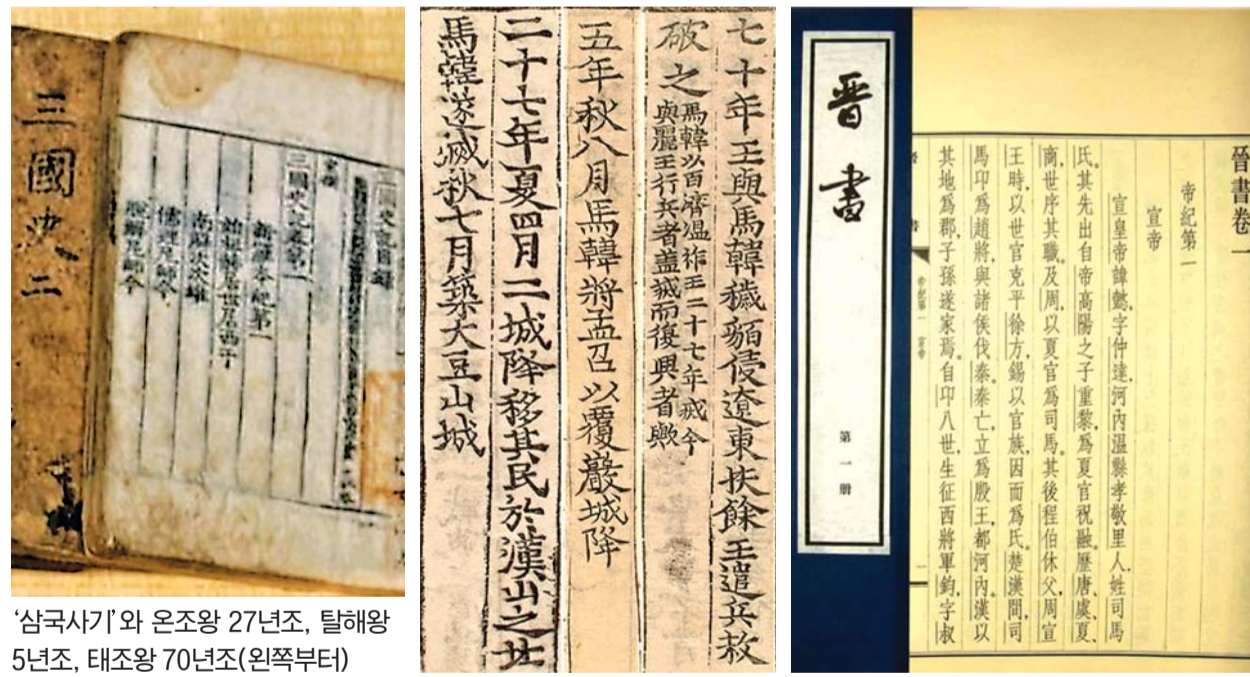 三國史二
三國史記目錄
三國史記卷第一
新羅本紀第一
始祖赫居世居西干
南解次次雄
儒理尼師今
脫解尼師今
'삼국사기'와 온조왕 27년조, 탈해왕
5년조, 태조왕 70년조(왼쪽부터)
七十年王與馬韓穢貊侵遼東扶餘王遣兵救
破之馬韓以百濟温祚王二十七年滅今
與麗王行兵者盖滅而復興者歟
五年秋八月馬韓將孟召以覆巖城降
二十七年夏四月二城降移其民於漢山之北
馬韓遂滅秋七月築大豆山城
晋書
第一册
晉書卷一
帝紀第一
宣帝
宣皇帝諱懿,字仲達,河內溫縣孝敬里人,姓司馬
氏。其先出自帝高陽之子重黎,爲夏官祝融。歷唐、虞、夏、
商,世序其職。及周,以夏官爲司馬。其後程伯休父,周宣
王時,以世官克平徐方,錫以官族,因而爲氏。楚漢間,司
馬卬爲趙將,與諸侯伐秦。秦亡,立爲殷王,都河內。漢以
其地爲郡,子孫遂家焉。自卬八世,生征西將軍鈞,字叔